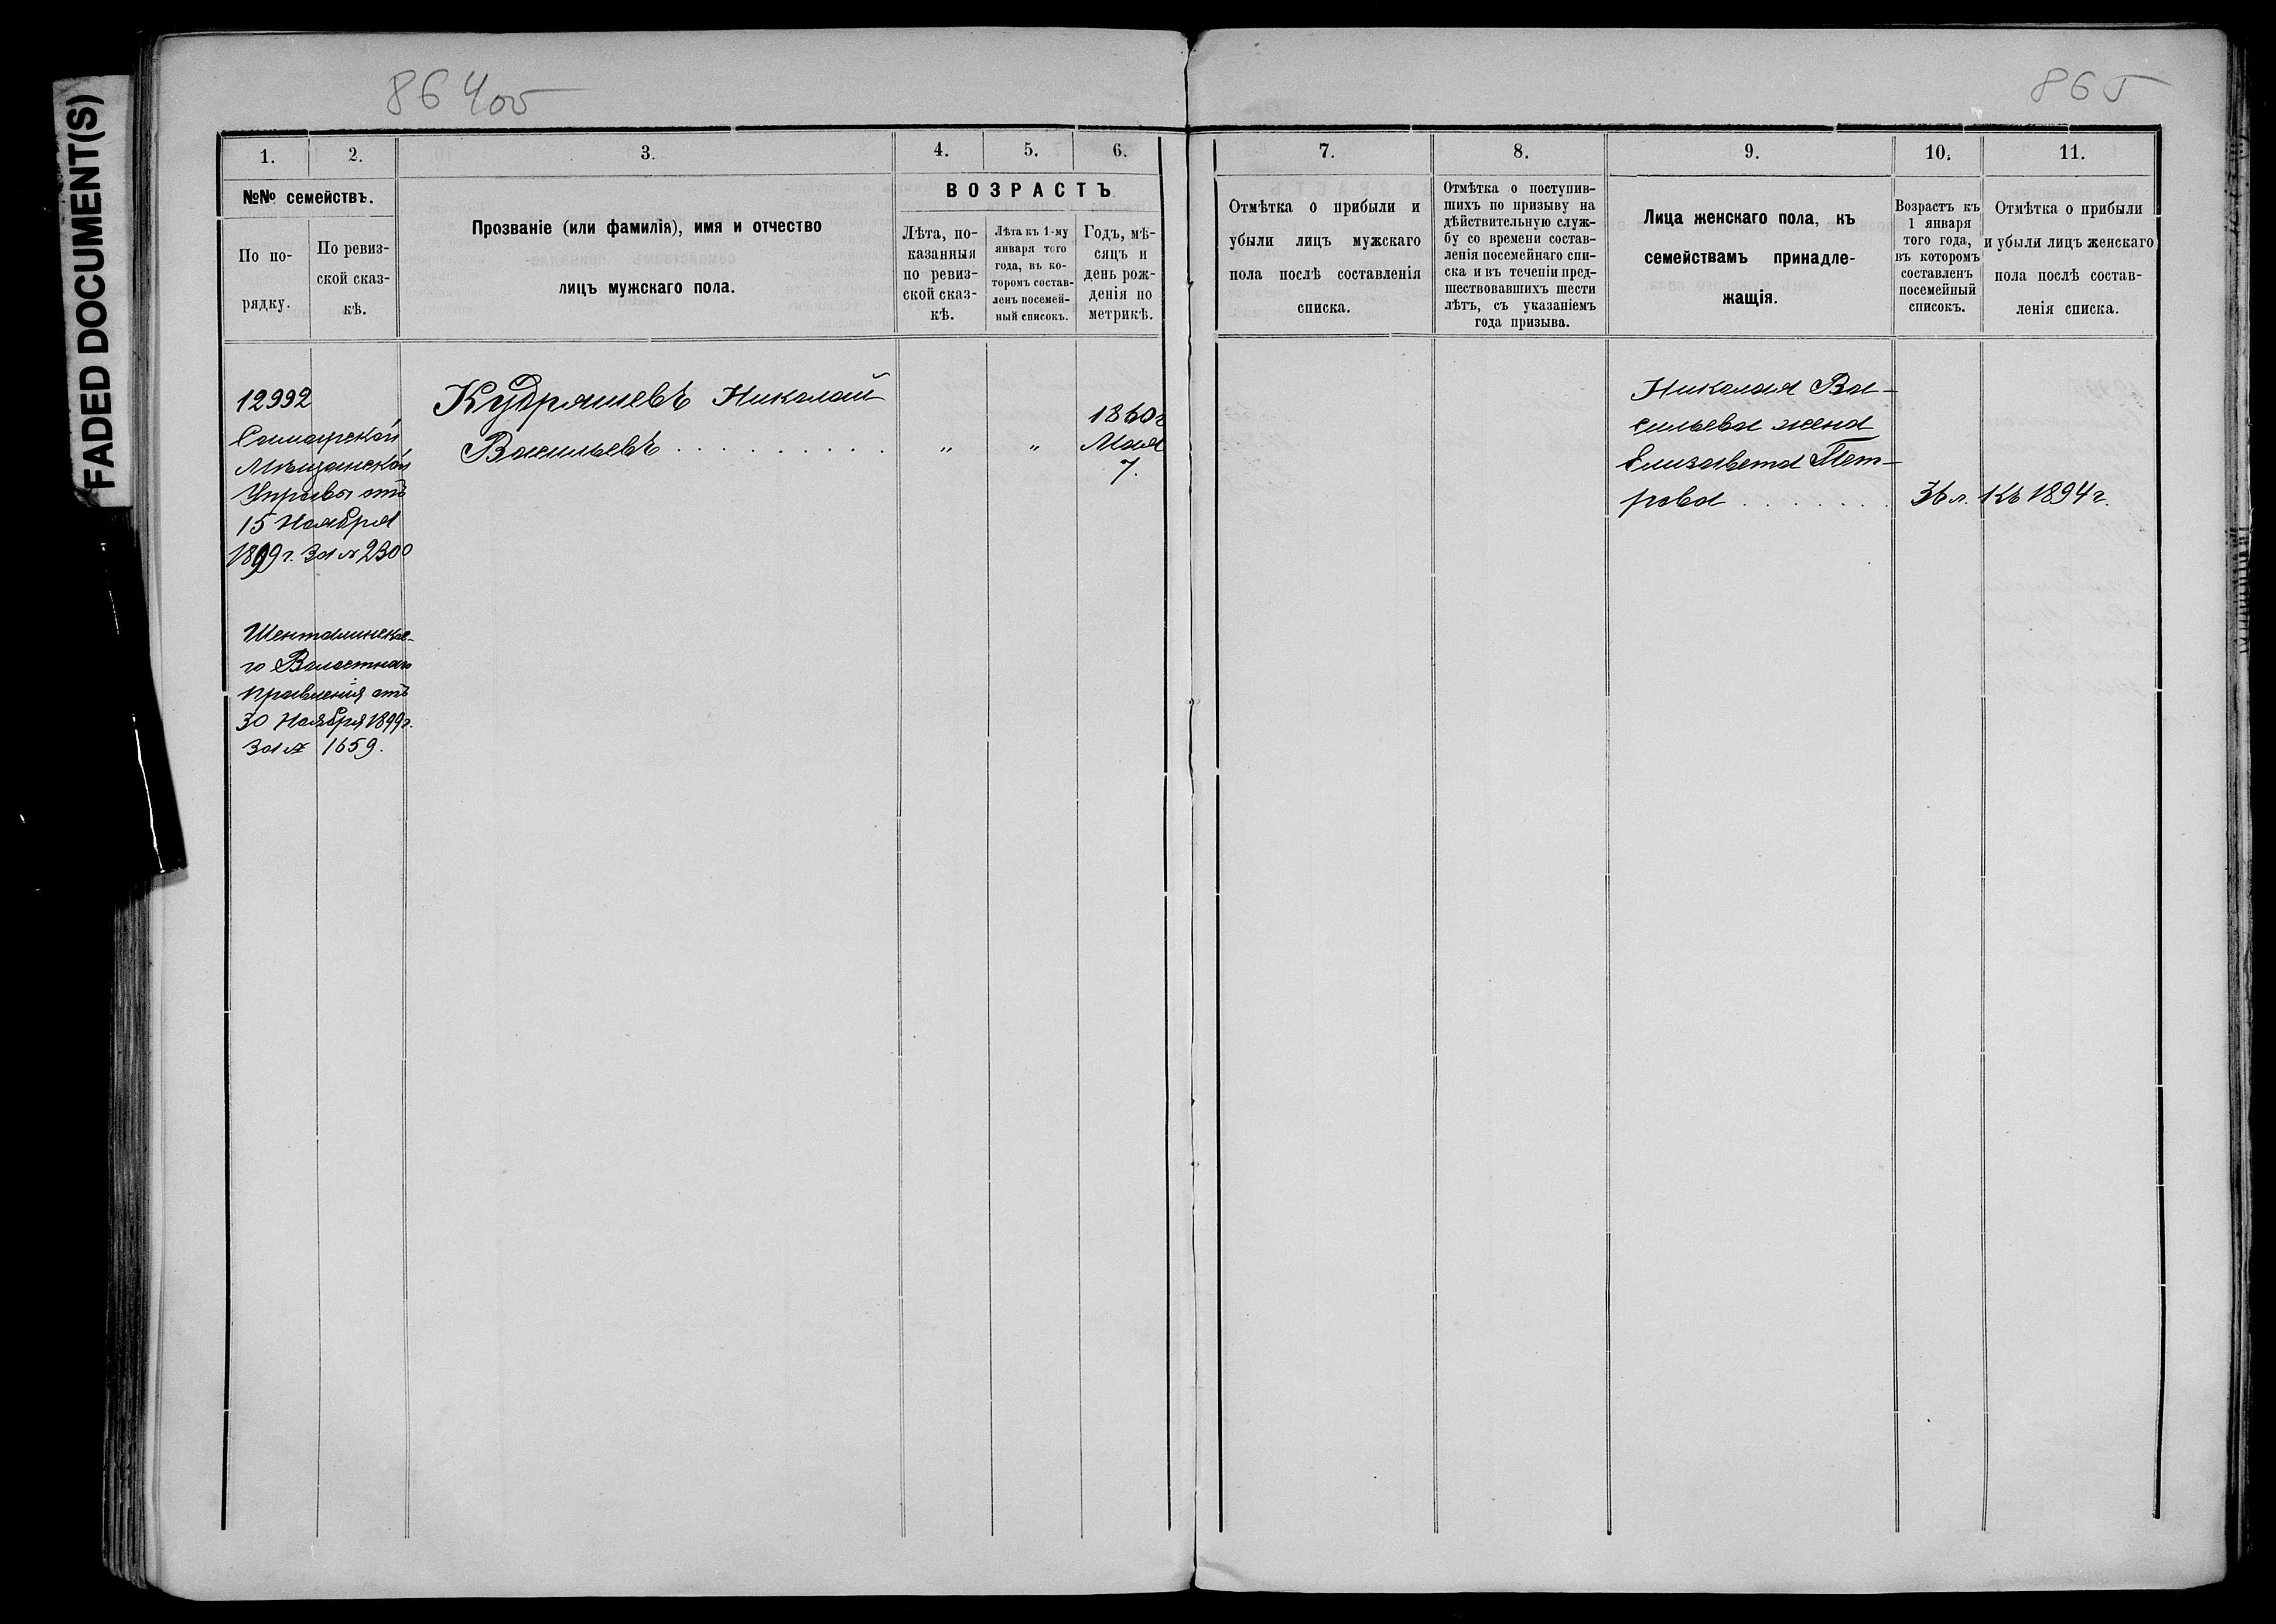 FADED DOCUMENT(S)
864об
865
1.
2.
3.
4.
5.
6.
№№ семействъ.
По по-
рядку.
По ревиз-
ской сказ-
кѣ.
Прозваніе (или фамилія), имя и отчество
лицъ мужскаго пола.
ВОЗРАСТЪ
Лѣта, по-
казанныя
по ревиз-
ской сказ-
кѣ.
Лѣта къ 1-му
января того
года, въ ко-
торомъ состав-
ленъ посемей-
ный списокъ.
Годъ, мѣ-
сяцъ и
день рож-
денія по
метрикѣ.
12992
Самарской
Мѣщанской
Управы отъ
15 Ноября
1899 г. За № 2300
Шенталинска-
го Волостнаго
Правленія отъ
30 Ноября 1899 г.
За № 1659.
Кудряшевъ Николай
Васильевъ . . . . . . . . . .
"
"
1860 г
Мая
7.
7.
8.
9.
10.
11.
Отмѣтка о прибыли и
убыли лицъ мужскаго
пола послѣ составленія
списка.
Отмѣтка о поступив-
шихъ по призыву на
дѣйствительную служ-
бу со времени состав-
ленія посемейнаго спи-
ска и въ теченіи пред-
шествовавшихъ шести
лѣтъ, съ указаніемъ
года призыва.
Лица женскаго пола, къ
семействамъ принадле-
жащія.
Возрастъ къ
1 января
того года,
въ которомъ
составленъ
посемейный
списокъ.
Отмѣтка о прибыли
и убыли лицъ женскаго
пола послѣ состав-
ленія списка.
Николая Ва-
сильева жена
Елизавета Пет-
рова . . . . . . . . 36 л. Къ 1894 г.